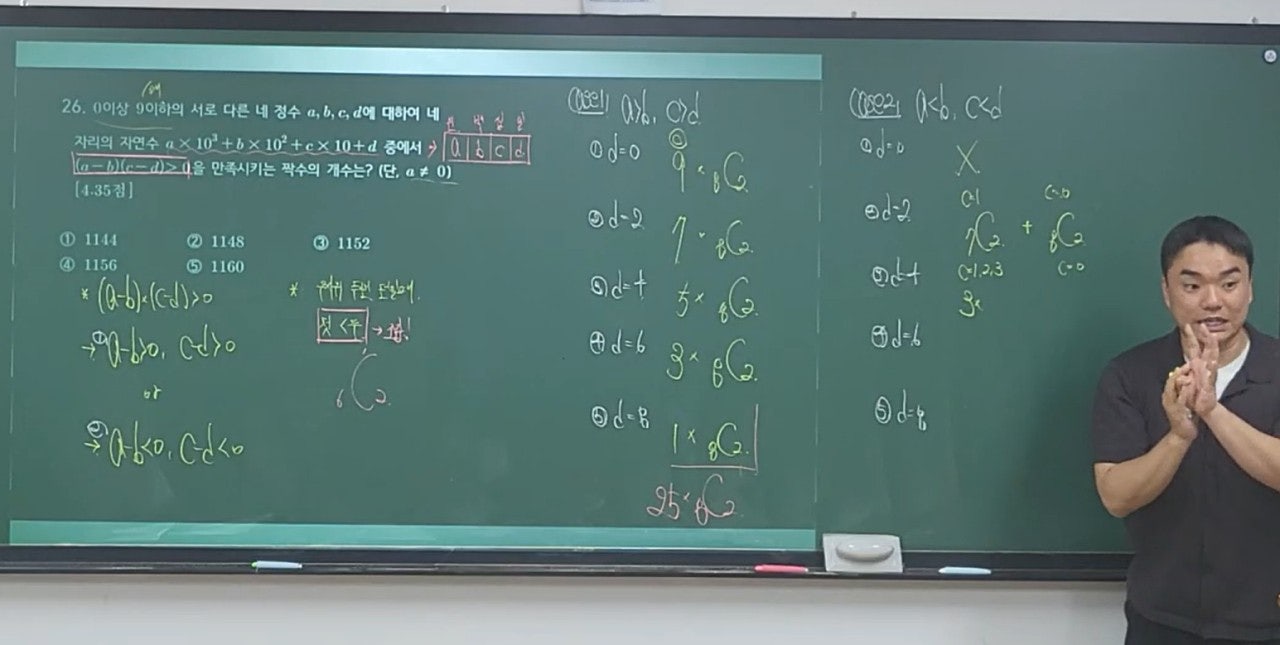 26. 0이상 9이하의 서로 다른 네 정수 a, b, c, d에 대하여 네
자리의 자연수 a × 10³ + b × 10² + c × 10 + d 중에서
a b c d
(a − b)(c − d) > 0을 만족시키는 짝수의 개수는? (단, a ≠ 0)
[4.35점]
① 1144 ② 1148 ③ 1152
④ 1156 ⑤ 1160
* (a-b)×(c-d)>0
→ ① a-b>0, c-d>0
or
→ ② a-b<0, c-d<0
*
첫 < 두 →
₆C₂
case1) a>b, c>d
① d=0 9 × ₈C₂
② d=2 7 × ₈C₂
③ d=4 5 × ₈C₂
④ d=6 3 × ₈C₂
⑤ d=8 1 × ₈C₂
25 × ₈C₂
case2) a<b, c<d
① d=0 X
c=1 c=0
② d=2 ₇C₂ + ₈C₂
c=1,2,3 c=0
③ d=4 3×
④ d=6
⑤ d=8